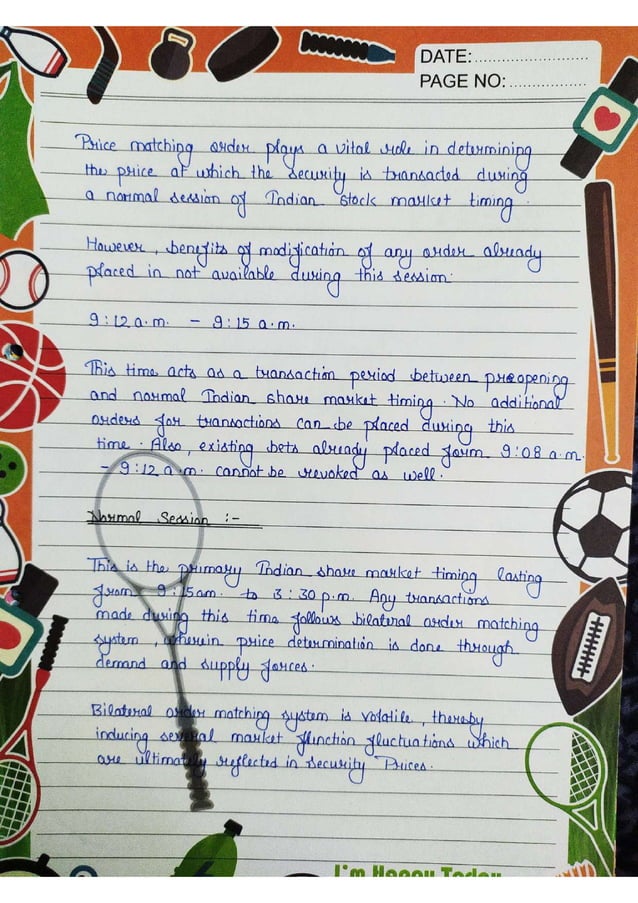 DATE:
PAGE NO:
Price matching order plays a vital role in determining
the price at which the security is transacted during
a normal session of Indian stock market timing.
However, benefits of modification of any order already
placed in not available during this session.
9:12 a.m. - 9:15 a.m.
This time acts as a transaction period between preopening
and normal Indian share market timing. No additional
orders for transactions can be placed during this
time. Also, existing bets already placed form 9:08 a.m.
- 9:12 a.m. cannot be revoked as well.
Normal Session :-
This is the primary Indian share market timing lasting
from 9:15am. to 3:30 p.m. Any transactions
made during this time follows bilateral order matching
system, wherein price determination is done through
demand and supply forces.
Bilateral order matching system is volatile, thereby
inducing several market flinction fluctuations which
are ultimately reflected in security Prices.
I'm Happy Today